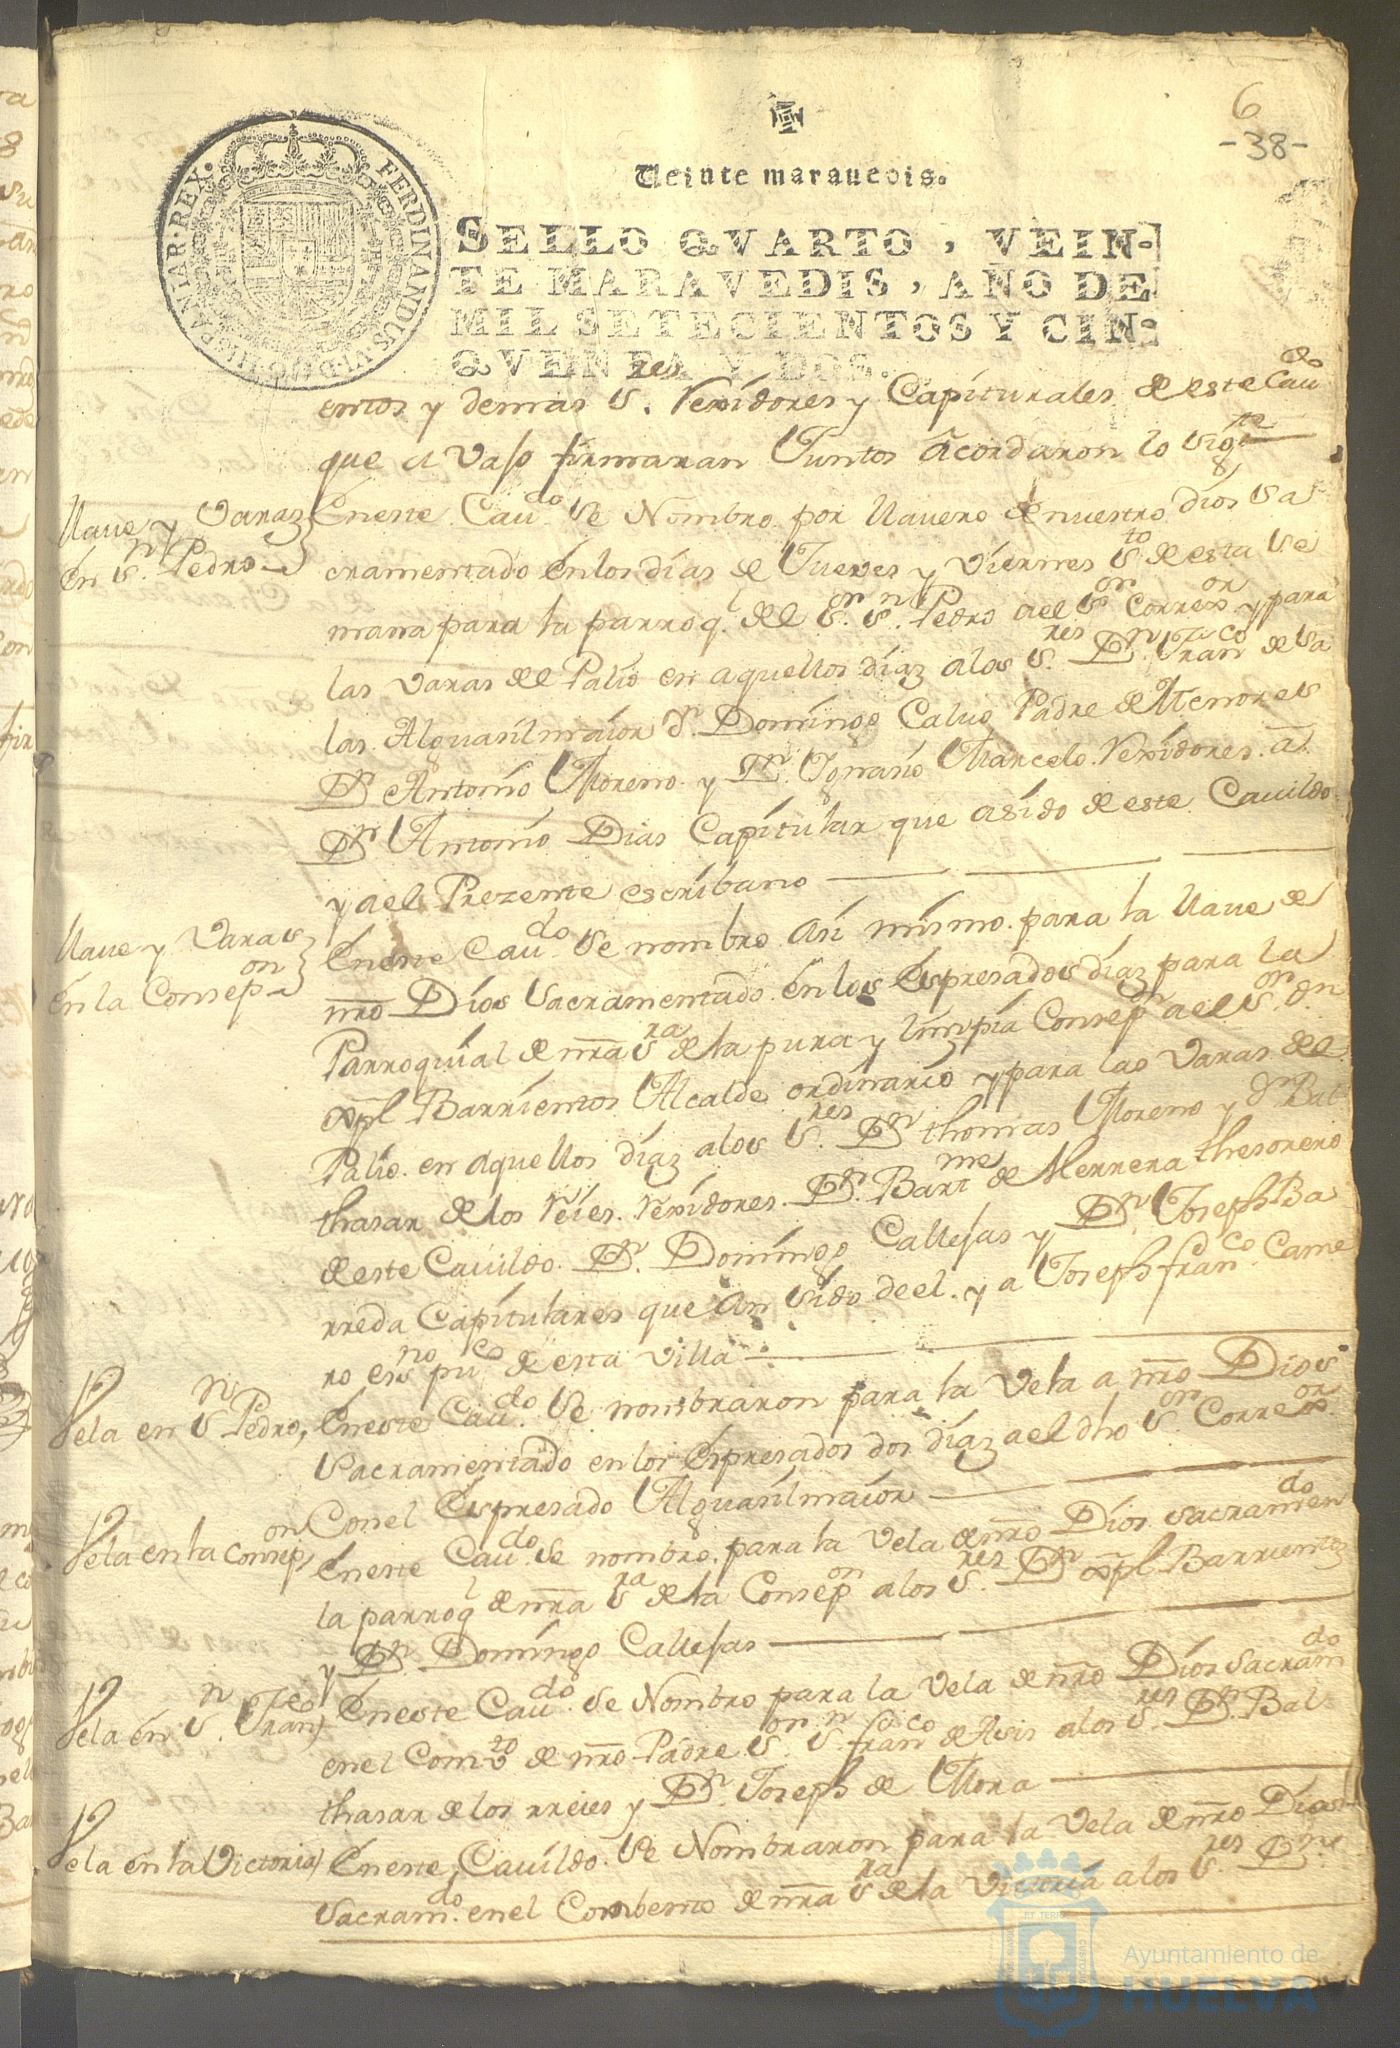 6
-38-
Veinte marauedis.
HISPANIAR·REX· FERDINANDUS·VI·D·G·
SELLO QVARTO, VEIN-
TE MARAVEDIS, AÑO DE
MIL SETECIENTOS Y CIN-
QVENTA Y DOS.
entos y demas S.res Rexidores y Capiturales de este Cau.do
que a vaso firmaran Juntos acordaron lo sig.te
Llave y Varaz
en S.n Pedro
Eneste Cau.do se Nombro por llavero de nuestro dios Sa
cramentado en los dias de Jueves y Viernes S.to de esta Se
mana para la parroq.l del S.or S.n Pedro a el S.or Correx.or y para
las varas del Palio en aquellos diaz alos S.res D.n Fran.co de Sa
las Alguasilmaior d.n Domingo Calvo Padre de Menores
D.n Antonio Moreno y D.n Ygnasio Marcelo Rexidores a
D.n Antonio Dias Capitular que asido de este Cavildo
y a el Prezente escribano
Llave y Varas
en la Consep.on
Eneste Cau.do se nombro Asi mismo para la llave de
nro Dios Sacramentado en los Espresados diaz para la
Parroquial de nra S.ra de la pura y limpia Consep.n a el S.or d.n
xpl Barrientos Alcalde ordinario y para las varas del
Palio en aquellos diaz alos S.res D.n thomas Moreno y d.n Bal
thasar de los Reies Rexidores D.n Bart.me de Herrera thesorero
de este Cavildo D.n Domingo Callesas y D.n Joseph Ba
rreda Capitulares que an sido de el y a Joseph fran.co Came
ro es.no pu.co de esta villa
Vela en S.n Pedro
Eneste Cau.do se nombraron para la Vela a nro Dios
Sacramentado en los Espresados dos diaz a el dho S.or Correx.or
Con el Espresado Alguasilmaior
Vela en la Consep.on
Eneste Cau.do se nombro para la vela de nro Dios sacram.do en
la parroq.l de nra S.ra de la Consep.on a los S.res D.n xpl Barrientoz
y D.n Domingo Callesas
Vela en S.n Fran.co
Eneste Cau.do se Nombro para la Vela de nro Dios Sacram.do
en el Comv.to de nro Padre S.or S.n fran.co de Asis alos S.res D.n Bal
thasar de los rreies y D.n Joseph de Mora
Vela en la Victoria
Eneste Cavildo se Nombraron para la Vela de nro Dios
Sacram.do en el Combento de nra S.ra de la Victoria a los S.res D.n
Ayuntamiento de
HUELVA